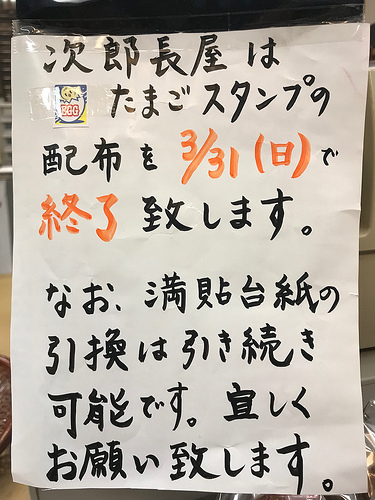 次郎長屋は
EGG たまごスタンプの
配布を3/31(日)で
終了致します。
なお、満貼台紙の
引換は引き続き
可能です。宜しく
お願い致します。